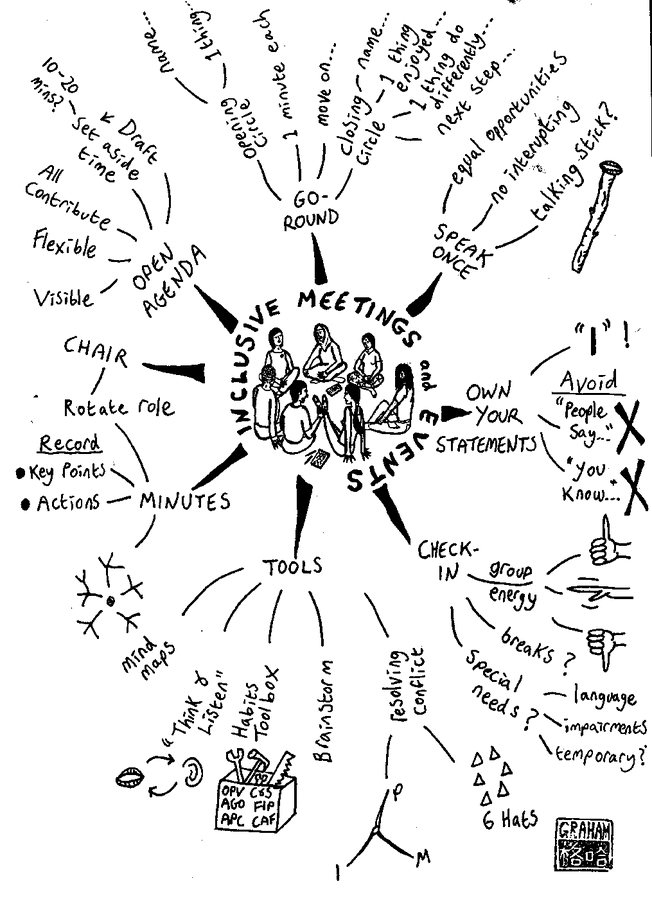 INCLUSIVE MEETINGS
and EVENTS
GO-
ROUND
Opening
Circle
name...
1 thing...
1 minute each
move on...
closing
Circle
name...
1 thing
enjoyed...
1 thing do
differently...
next step...
SPEAK
ONCE
equal opportunities
no interupting
talking stick?
OWN
YOUR
STATEMENTS
"I" !
Avoid
"People
Say..."
"You
Know..."
CHECK-
IN
group
energy
breaks?
special
needs?
language
impairments
temporary?
TOOLS
resolving
conflict
6 Hats
P
I
M
Brainstorm
Habits
Toolbox
OPV C&S
AGO FIP
APC CAF
"Think &
Listen"
mind
maps
MINUTES
Record
Key Points
Actions
Rotate role
CHAIR
OPEN
AGENDA
Visible
Flexible
All
Contribute
Set aside
time
10-20
mins?
Draft
GRAHAM
格哈